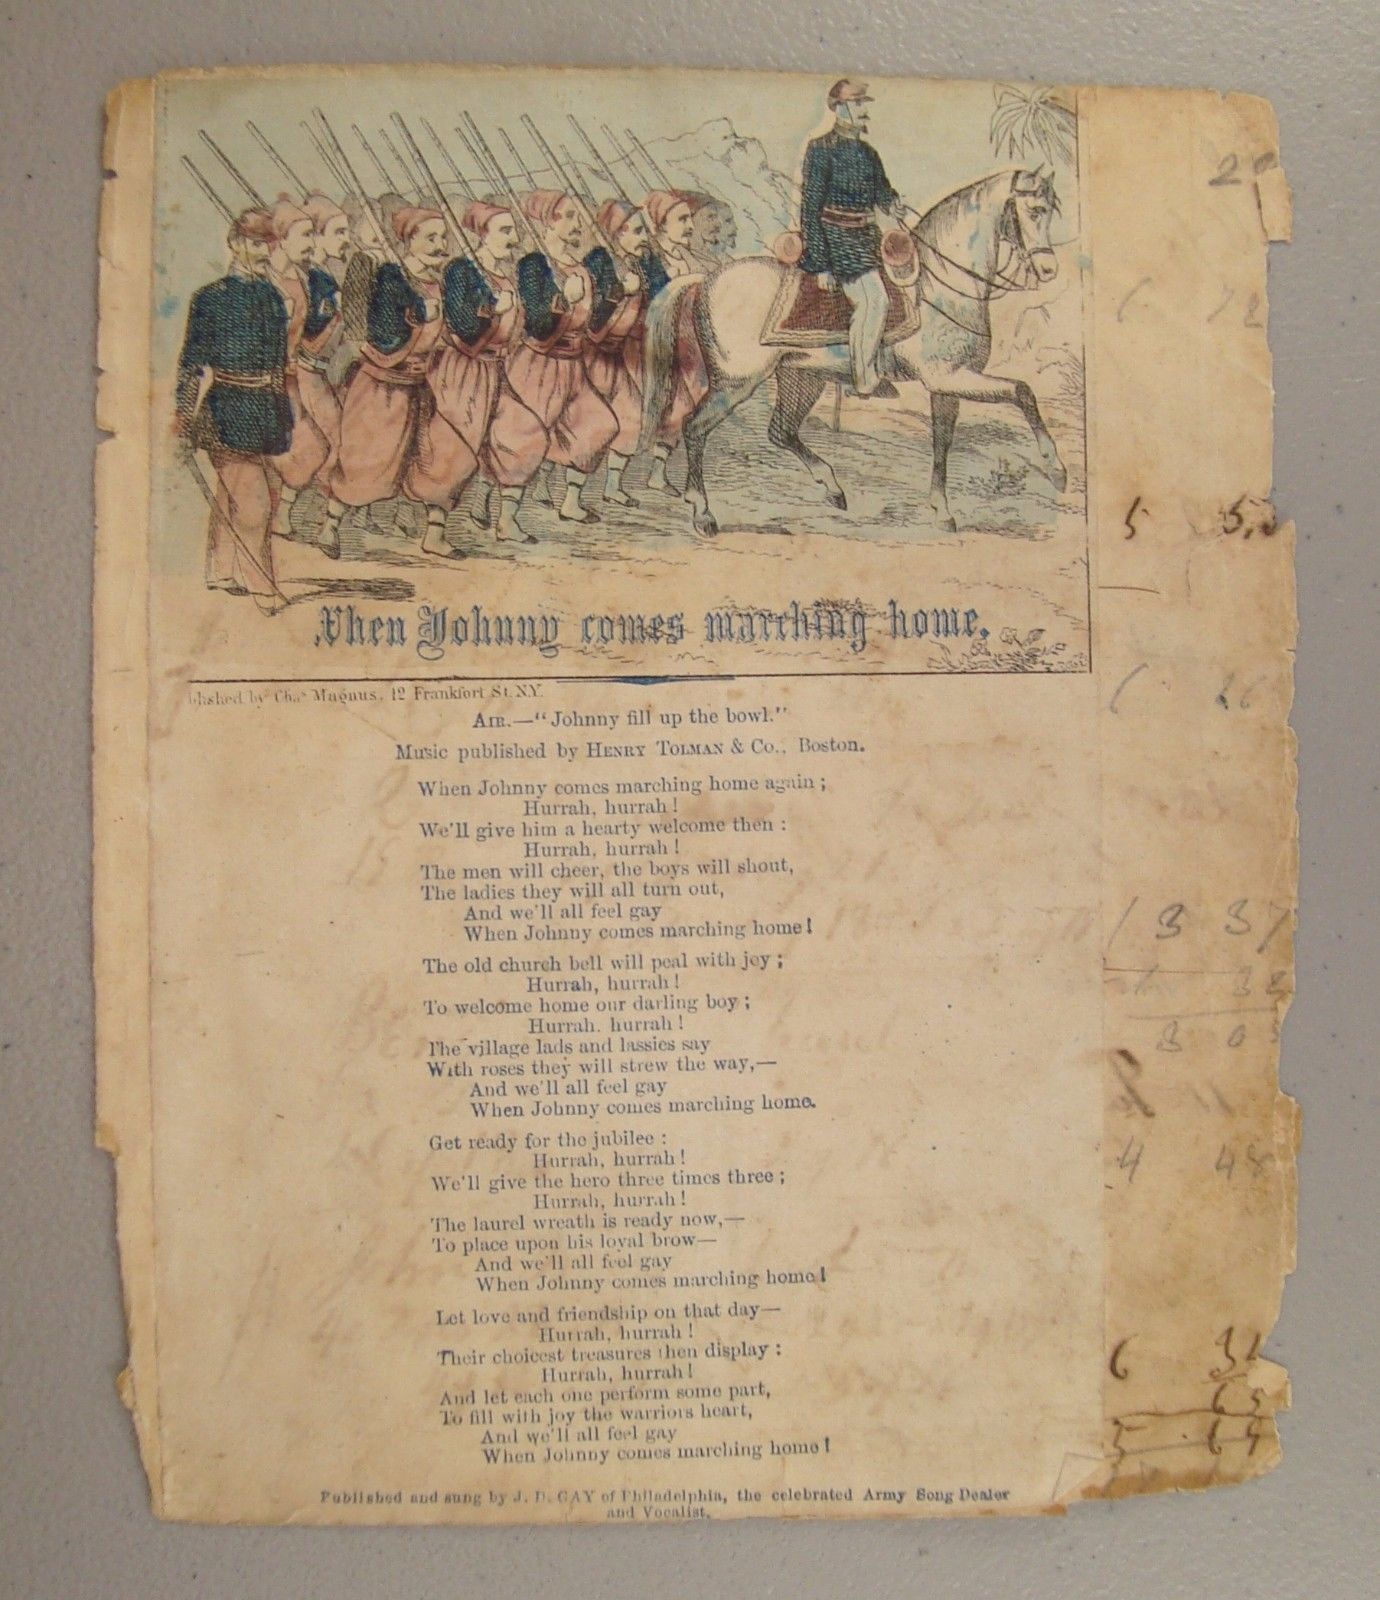 When Johnny comes marching home.
blished by Chas Magnus, 12 Frankfort St. N.Y.
Air.—"Johnny fill up the bowl."
Music published by Henry Tolman & Co., Boston.
When Johnny comes marching home again ;
Hurrah, hurrah !
We'll give him a hearty welcome then :
Hurrah, hurrah !
The men will cheer, the boys will shout,
The ladies they will all turn out,
And we'll all feel gay
When Johnny comes marching home !
The old church bell will peal with joy ;
Hurrah, hurrah !
To welcome home our darling boy ;
Hurrah. hurrah !
The village lads and lassies say
With roses they will strew the way,—
And we'll all feel gay
When Johnny comes marching home.
Get ready for the jubilee :
Hurrah, hurrah !
We'll give the hero three times three ;
Hurrah, hurrah !
The laurel wreath is ready now,—
To place upon his loyal brow—
And we'll all feel gay
When Johnny comes marching home !
Let love and friendship on that day—
Hurrah, hurrah !
Their choicest treasures then display :
Hurrah, hurrah !
And let each one perform some part,
To fill with joy the warriors heart,
And we'll all feel gay
When Johnny comes marching home !
Published and sung by J. D. GAY of Philadelphia, the celebrated Army Song Dealer
and Vocalist.
72
5
26
3 37
4 48
6
65
65